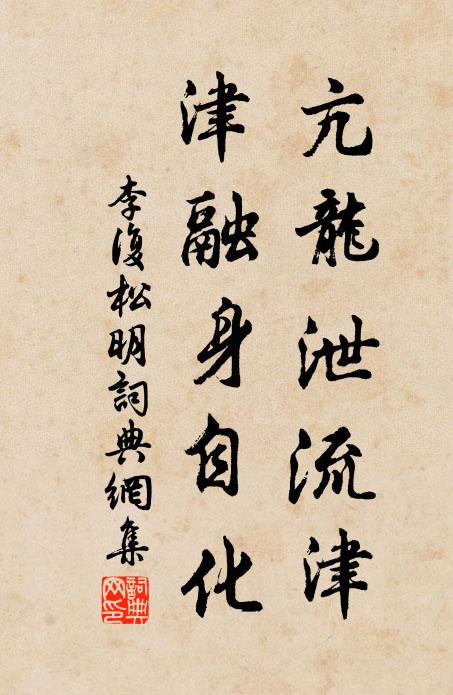 亢龍泄流津
津融身自化
李復松明詞典網集
詞典網印